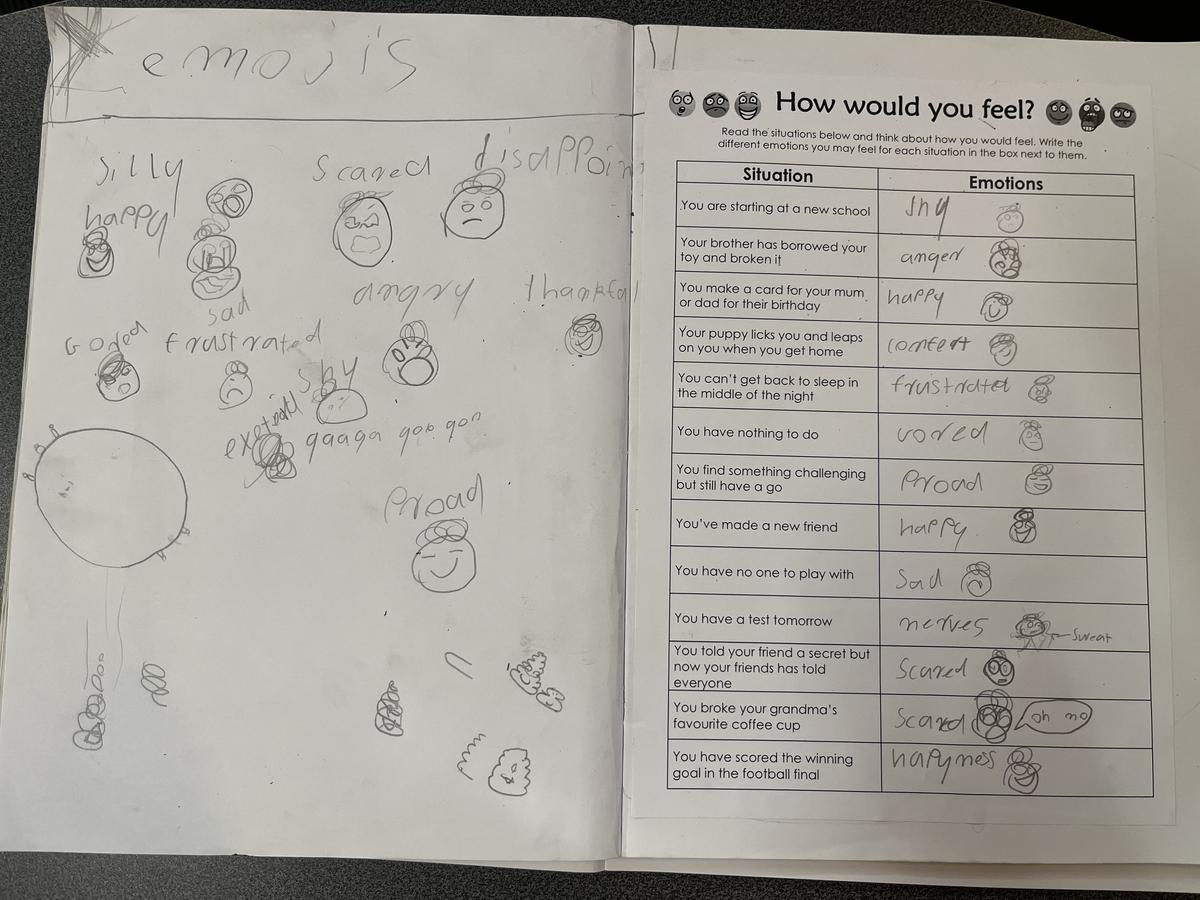 emoris
silly
scared
disappoin
happy
sad
angry
thankful
Gored
frustrated
shy
gaaga goo goo
Proad
How would you feel?
Read the situations below and think about how you would feel. Write the
different emotions you may feel for each situation in the box next to them.
Situation
Emotions
You are starting at a new school
shy
Your brother has borrowed your
toy and broken it
anger
You make a card for your mum
or dad for their birthday
happy
Your puppy licks you and leaps
on you when you get home
confert
You can't get back to sleep in
the middle of the night
frustrated
You have nothing to do
vored
You find something challenging
but still have a go
Proad
You've made a new friend
happy
You have no one to play with
Sad
You have a test tomorrow
nerves
Sweat
You told your friend a secret but
now your friends has told
everyone
Scared
You broke your grandma's
favourite coffee cup
Scared
oh no
You have scored the winning
goal in the football final
hapyness